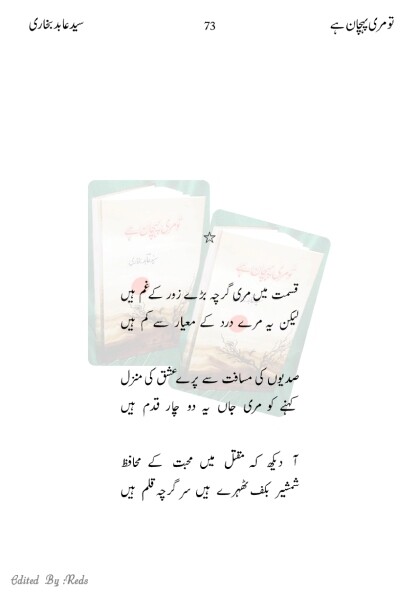 تو مری پہچان ہے 73 سید عابد بخاری
تو مری پہچان ہے
سید عابد بخاری
تو مری پہچان ہے
☆
قسمت میں مری گرچہ بڑے زور کے غم ہیں
لیکن یہ مرے درد کے معیار سے کم ہیں
صدیوں کی مسافت سے پرے عشق کی منزل
کہنے کو مری جاں یہ دو چار قدم ہیں
آ دیکھ کہ مقتل میں محبت کے محافظ
شمشیر بکف ٹھہرے ہیں سر گرچہ قلم ہیں
Edited By Reds